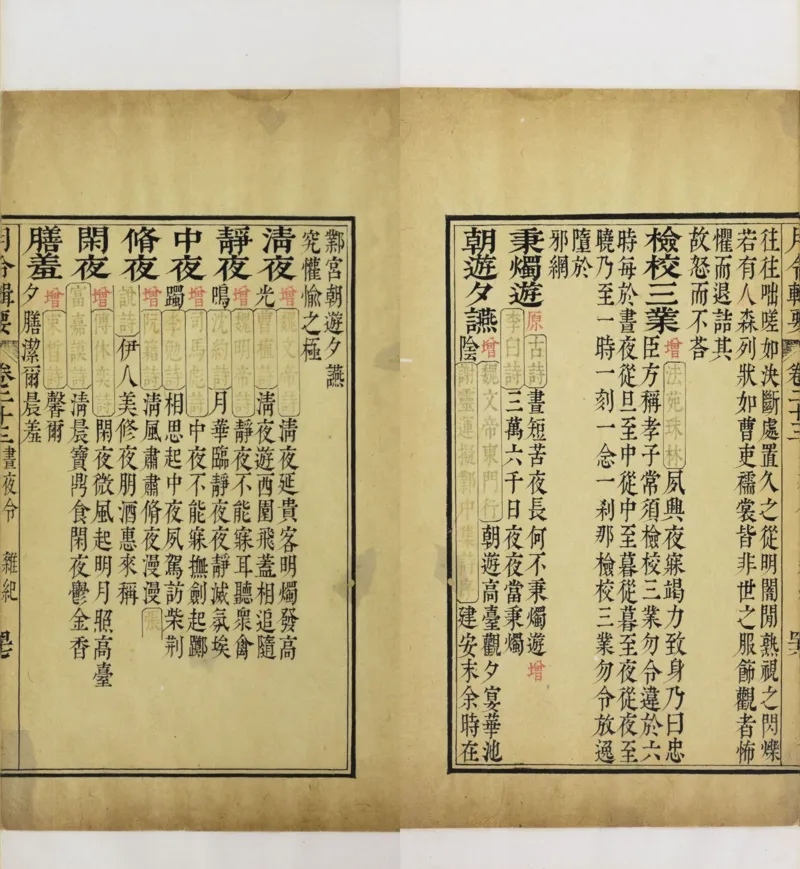 月令輯要 卷二十三
往往咄嗟如決斷處置久之從明闇閒熟視之閃爍
若有人森列狀如曹吏襦裳皆非世之服飾觀者怖
懼而退詰其
故怒而不荅
檢校三業 增 法苑珠林 夙興夜寐竭力致身乃曰忠
臣方稱孝子常須檢校三業勿令違於六
時每於晝夜從旦至中從中至暮從暮至夜從夜至
曉乃至一時一刻一念一剎那檢校三業勿令放逸
墮於
邪網
秉燭遊 原 古詩 晝短苦夜長何不秉燭遊 增
李白詩 三萬六千日夜夜當秉燭
朝遊夕讌 增 魏文帝東門行 朝遊高臺觀夕宴華池
陰 謝靈運擬鄴中集詩序 建安末余時在
鄴宮朝遊夕讌
究懽愉之極
清夜 增 魏文帝詩 清夜延貴客明燭發高
光 曹植詩 清夜遊西園飛蓋相追隨
靜夜 增 魏明帝詩 靜夜不能寐耳聽眾禽
鳴 沈約詩 月華臨靜夜夜靜滅氛埃
中夜 增 司馬彪詩 中夜不能寐撫劍起躑
躅 李勉詩 相思起中夜夙駕訪柴荆
脩夜 增 阮籍詩 清風肅肅脩夜漫漫 張
說詩 伊人美修夜朋酒惠來稱
閑夜 增 傅休奕詩 閑夜微風起明月照高臺
富嘉謨詩 清晨寶鼎食閑夜鬱金香
膳羞 增 束晳詩 馨爾
夕膳潔爾晨羞
月令輯要 卷二十三 晝夜令 雜紀